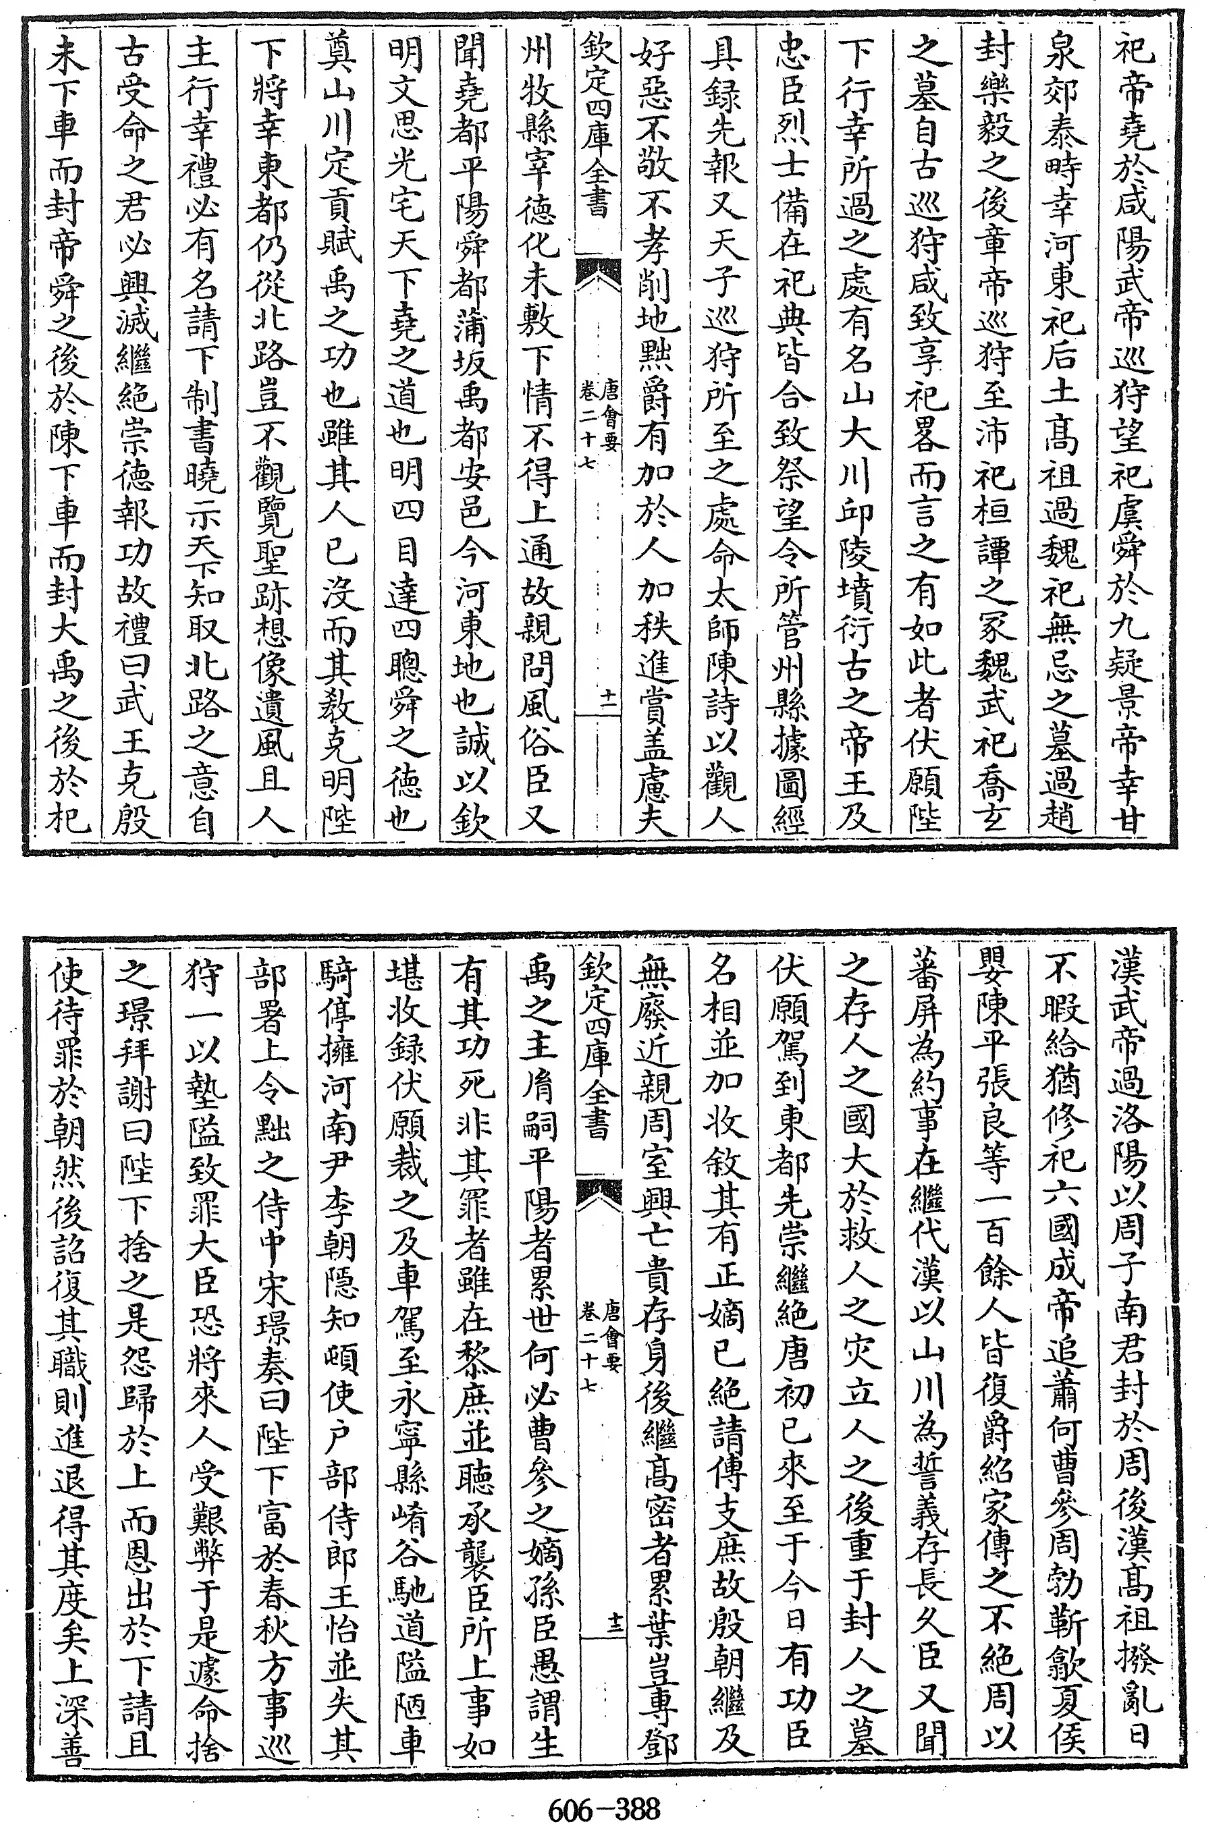 祀帝堯於咸陽武帝巡狩望祀虞舜於九疑景帝幸甘
泉郊泰畤幸河東祀后土髙祖過魏祀無忌之墓過趙
封樂毅之後章帝巡狩至沛祀桓譚之冢魏武祀喬玄
之墓自古巡狩咸致享祀畧而言之有如此者伏願陛
下行幸所過之處有名山大川邱陵墳衍古之帝王及
忠臣烈士備在祀典皆合致祭望令所管州縣據圖經
具録先報又天子巡狩所至之處命太師陳詩以觀人
好惡不敬不孝削地黜爵有加於人加秩進賞盖慮夫
欽定四庫全書
唐會要
卷二十七
十一
州牧縣宰德化未敷下情不得上通故親問風俗臣又
聞堯都平陽舜都蒲坂禹都安邑今河東地也誠以欽
明文思光宅天下堯之道也明四目達四聰舜之徳也
奠山川定貢賦禹之功也雖其人已沒而其教克明陛
下將幸東都仍從北路豈不觀覽聖跡想像遺風且人
主行幸禮必有名請下制書曉示天下知取北路之意自
古受命之君必興滅繼絶崇德報功故禮曰武王克殷
未下車而封帝舜之後於陳下車而封大禹之後於杞
漢武帝過洛陽以周子南君封於周後漢髙祖撥亂日
不暇給猶修祀六國成帝追蕭何曹參周勃靳歙夏侯
嬰陳平張良等一百餘人皆復爵紹家傳之不絶周以
蕃屏為約事在繼代漢以山川為誓義存長久臣又聞
之存人之國大於救人之灾立人之後重于封人之墓
伏願駕到東都先崇繼絶唐初已來至于今日有功臣
名相並加收敘其有正嫡已絶請傳支庶故殷朝繼及
無廢近親周室興亡貴存身後繼髙密者累葉豈專鄧
欽定四庫全書
唐會要
卷二十七
十二
禹之主膺嗣平陽者累世何必曹參之嫡孫臣愚謂生
有其功死非其罪者雖在黎庶並聽承襲臣所上事如
堪收録伏願裁之及車駕至永寧縣崤谷馳道隘陋車
騎停擁河南尹李朝隠知頓使户部侍郎王怡並失其
部署上令黜之侍中宋璟奏曰陛下富於春秋方事巡
狩一以墊隘致罪大臣恐將來人受艱弊于是遽命捨
之璟拜謝曰陛下捨之是怨歸於上而恩出於下請且
使待罪於朝然後詔復其職則進退得其度矣上深善
606-388